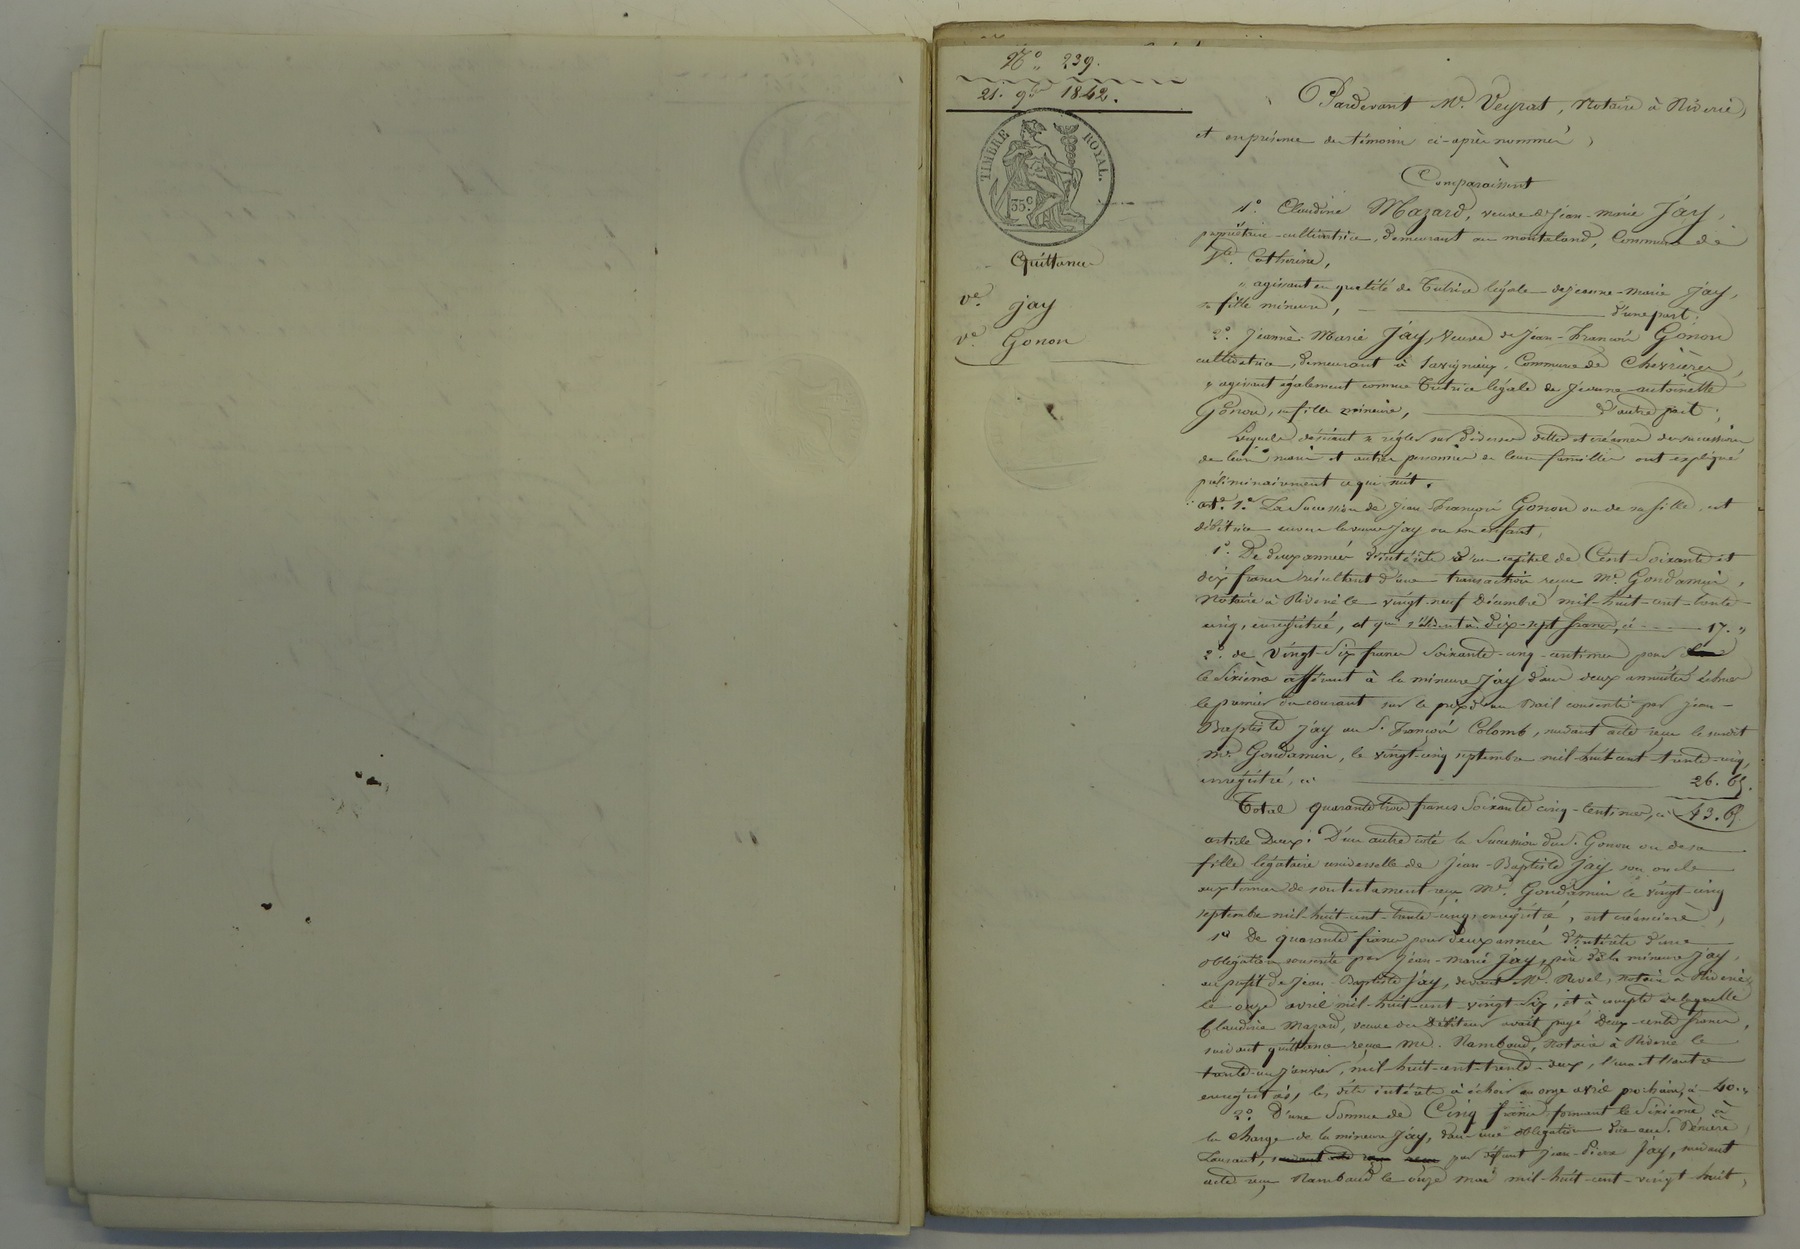 N° 239.
21. 9bre 1842.
TIMBRE ROYAL.
35 c
Quittance
ve. jay
ve. Gonon
Pardevant Me. Veyrat, Notaire à Riverie,
et en présence des témoins ci-après nommés,
Comparaissent
1°. Claudine Mazard, veuve de Jean-marie Jay,
propriétaire-cultivatrice, demeurant au montaland, Commune de
Ste. Catherine,
agissant en qualité de Tutrice légale de jeanne-marie Jay,
sa fille mineure, d'une part;
2°. Jeanne Marie Jay, Veuve de Jean-François Gonon
cultivatrice, demeurant à Savignieux, Commune de Chevrières,
agissant également comme Tutrice légale de Jeanne-antoinette
Gonon, sa fille mineure, d'autre part;
Lesquels désirant se régler sur diverses dettes et créances des successions
de leurs maris et autres personnes de leurs familles ont expliqué
préliminairement ce qui suit.
art. 1er. La Succession de Jean-François Gonon ou de sa fille, est
débitrice envers la veuve Jay ou son enfant,
1°. De deux années d'intérêts d'un capital de Cent-Soixante et
dix francs résultant d'une transaction reçue Me. Gondamin,
Notaire à Riverie le vingt-neuf Décembre mil-huit-cent-trente-
cinq, enregistrée, et qui s'élèvent à dix-sept francs, ci 17. "
2°. de Vingt-Six francs Soixante-cinq-centimes pour
le Sixième afférant à la mineure Jay dans deux annuités échues
le premier du courant sur le prix d'un Bail consenti par jean-
Baptiste Jay au S. François Colomb, suivant acte reçu le susdit
Me. Gondamin, le vingt-cinq septembre mil-huit-cent-trente-cinq,
enregistré, ci 26. 65.
Total quarante trois francs Soixante cinq-Centimes, ci 43. 65
article Deux. D'un autre côté la Succession du S. Gonon ou de sa
fille légataire universelle de Jean-Baptiste Jay, son oncle
aux termes de son testament reçu Me. Gondamin le vingt-cinq
septembre mil-huit-cent-trente-cinq, enregistré, est créancière,
1° De quarante francs pour deux années d'intérêts d'une
obligation souscrite par Jean-Marie Jay, père de la mineure Jay,
au profit de Jean-Baptiste Jay, devant Me. Nivel, notaire à Riverie,
le onze avril mil-huit-cent-vingt-Six, et à compte de laquelle
Claudine Mazard, veuve du débiteur avait payé Deux-cents francs,
suivant quittance reçue Me. Rambaud, Notaire à Riverie le
trente-un janvier, mil-huit-cent-trente-deux, l'une et l'autre
enregistrés, les dits intérêts à échoir au onze avril prochain, ci 40. "
2°. D'une Somme de Cinq francs formant le Sixième à
la charge de la mineure Jay, dans une obligation due au S.
par défunt Jean-Pierre Jay, suivant
acte reçu Rambaud le onze mai mil-huit-cent-vingt-huit,